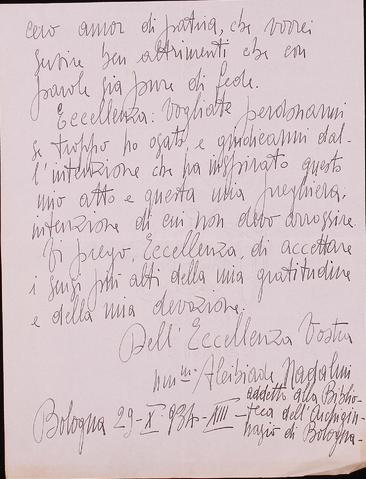 cero amor di patria, che vorrei
servire ben altrimenti che con
parole sia pure di fede.
Eccellenza: vogliate perdonarmi
se troppo ho osato, e giudicarmi dal-
l'intenzione che ha inspirato questo
mio atto e questa mia preghiera,
intenzione di cui non devo arrossire.
Vi prego, Eccellenza, di accettare
i sensi più alti della mia gratitudine
e della mia devozione.
Dell'Eccellenza Vostra
Alcibiade Nadalini
addetto alla Biblio-
teca dell'Archigin-
nasio di Bologna-
Bologna 29-X-934-XIII-